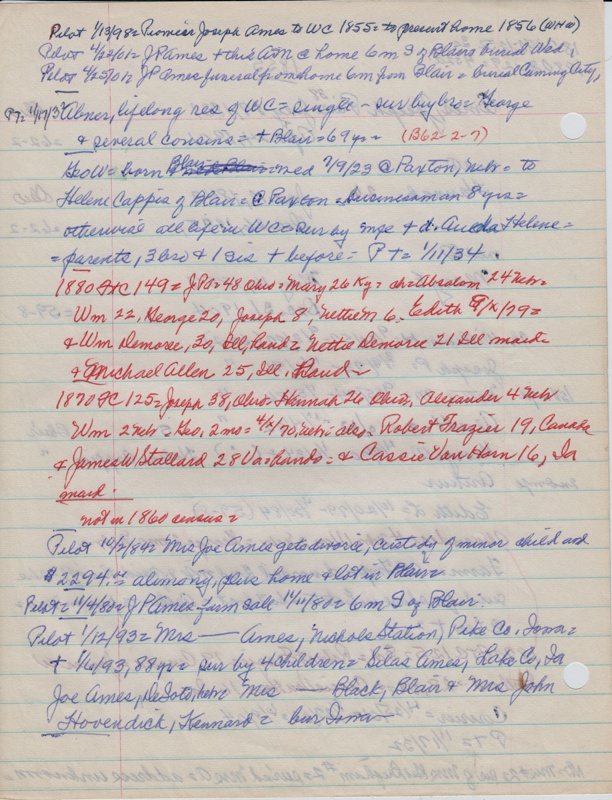 Pilot 1/13/98 = Pioneer Joseph Ames to WC 1855 = to present home 1856 (WHW)
Pilot 4/22/01 = JP Ames + this AM @ home 6m S of Blair = burial Wed.
Pilot 4/25/01 = JP Ames funeral from home 6m from Blair = burial Cuming City,
PT = 1/17/35 Abner, lifelong res of WC = single - sur by bro = George
& several cousins = + Blair = 69 yrs = (B62-2-7)
Geo W = born Blair = med 7/9/23 @ Paxton, Nebr = to
Helene Cappis of Blair = @ Paxton = businessman 8 yrs =
otherwise all life in WC = sur by wife + d.  Helene =
= parents, 3 bro & 1 sis + before = PT = 1/11/34
1880 FC 149 = J P = 48 Ohio = Mary 26 Ky = ch = Absalom 24 Nebr =
Wm 22, George 20, Joseph 8 Nettie M 6. Edith /79 =
& Wm Demoree, 20, Ill, hand = Netta Demoree 21 Ill maid =
& Michael Allen 25, Ill. Hand =
1870 FC 125 = Joseph 38, Ohio = Hannah 26 Ohio, Alexander 4 Nebr
Wm 2 Nebr = Geo, 2 mo = 4/x/70, Nebr; also Robert Frazier 19, Canada
& James W Stallard 28 Va = hands = & Cassie Van Horn 16, Ia
maid.
not in 1860 census =
Pilot 10/2/84 = Mrs Joe Ames gets divorce, custody of minor child and
$2294 alimony, plus home & lot in Blair
Pilot = 11/4/80 = J P Ames farm sale 11/11/80 = 6m S of Blair.
Pilot 1/12/93 = Mrs — Ames, Nichols Station, Pike Co. Iowa =
+ 1/6/93, 88 yrs = sur by 4 children = Silas Ames, Lake Co, Ia
Joe Ames, DeSoto, Nebr Mrs — Black, Blair & Mrs John
Hovendick, Kennard = bur Iowa —